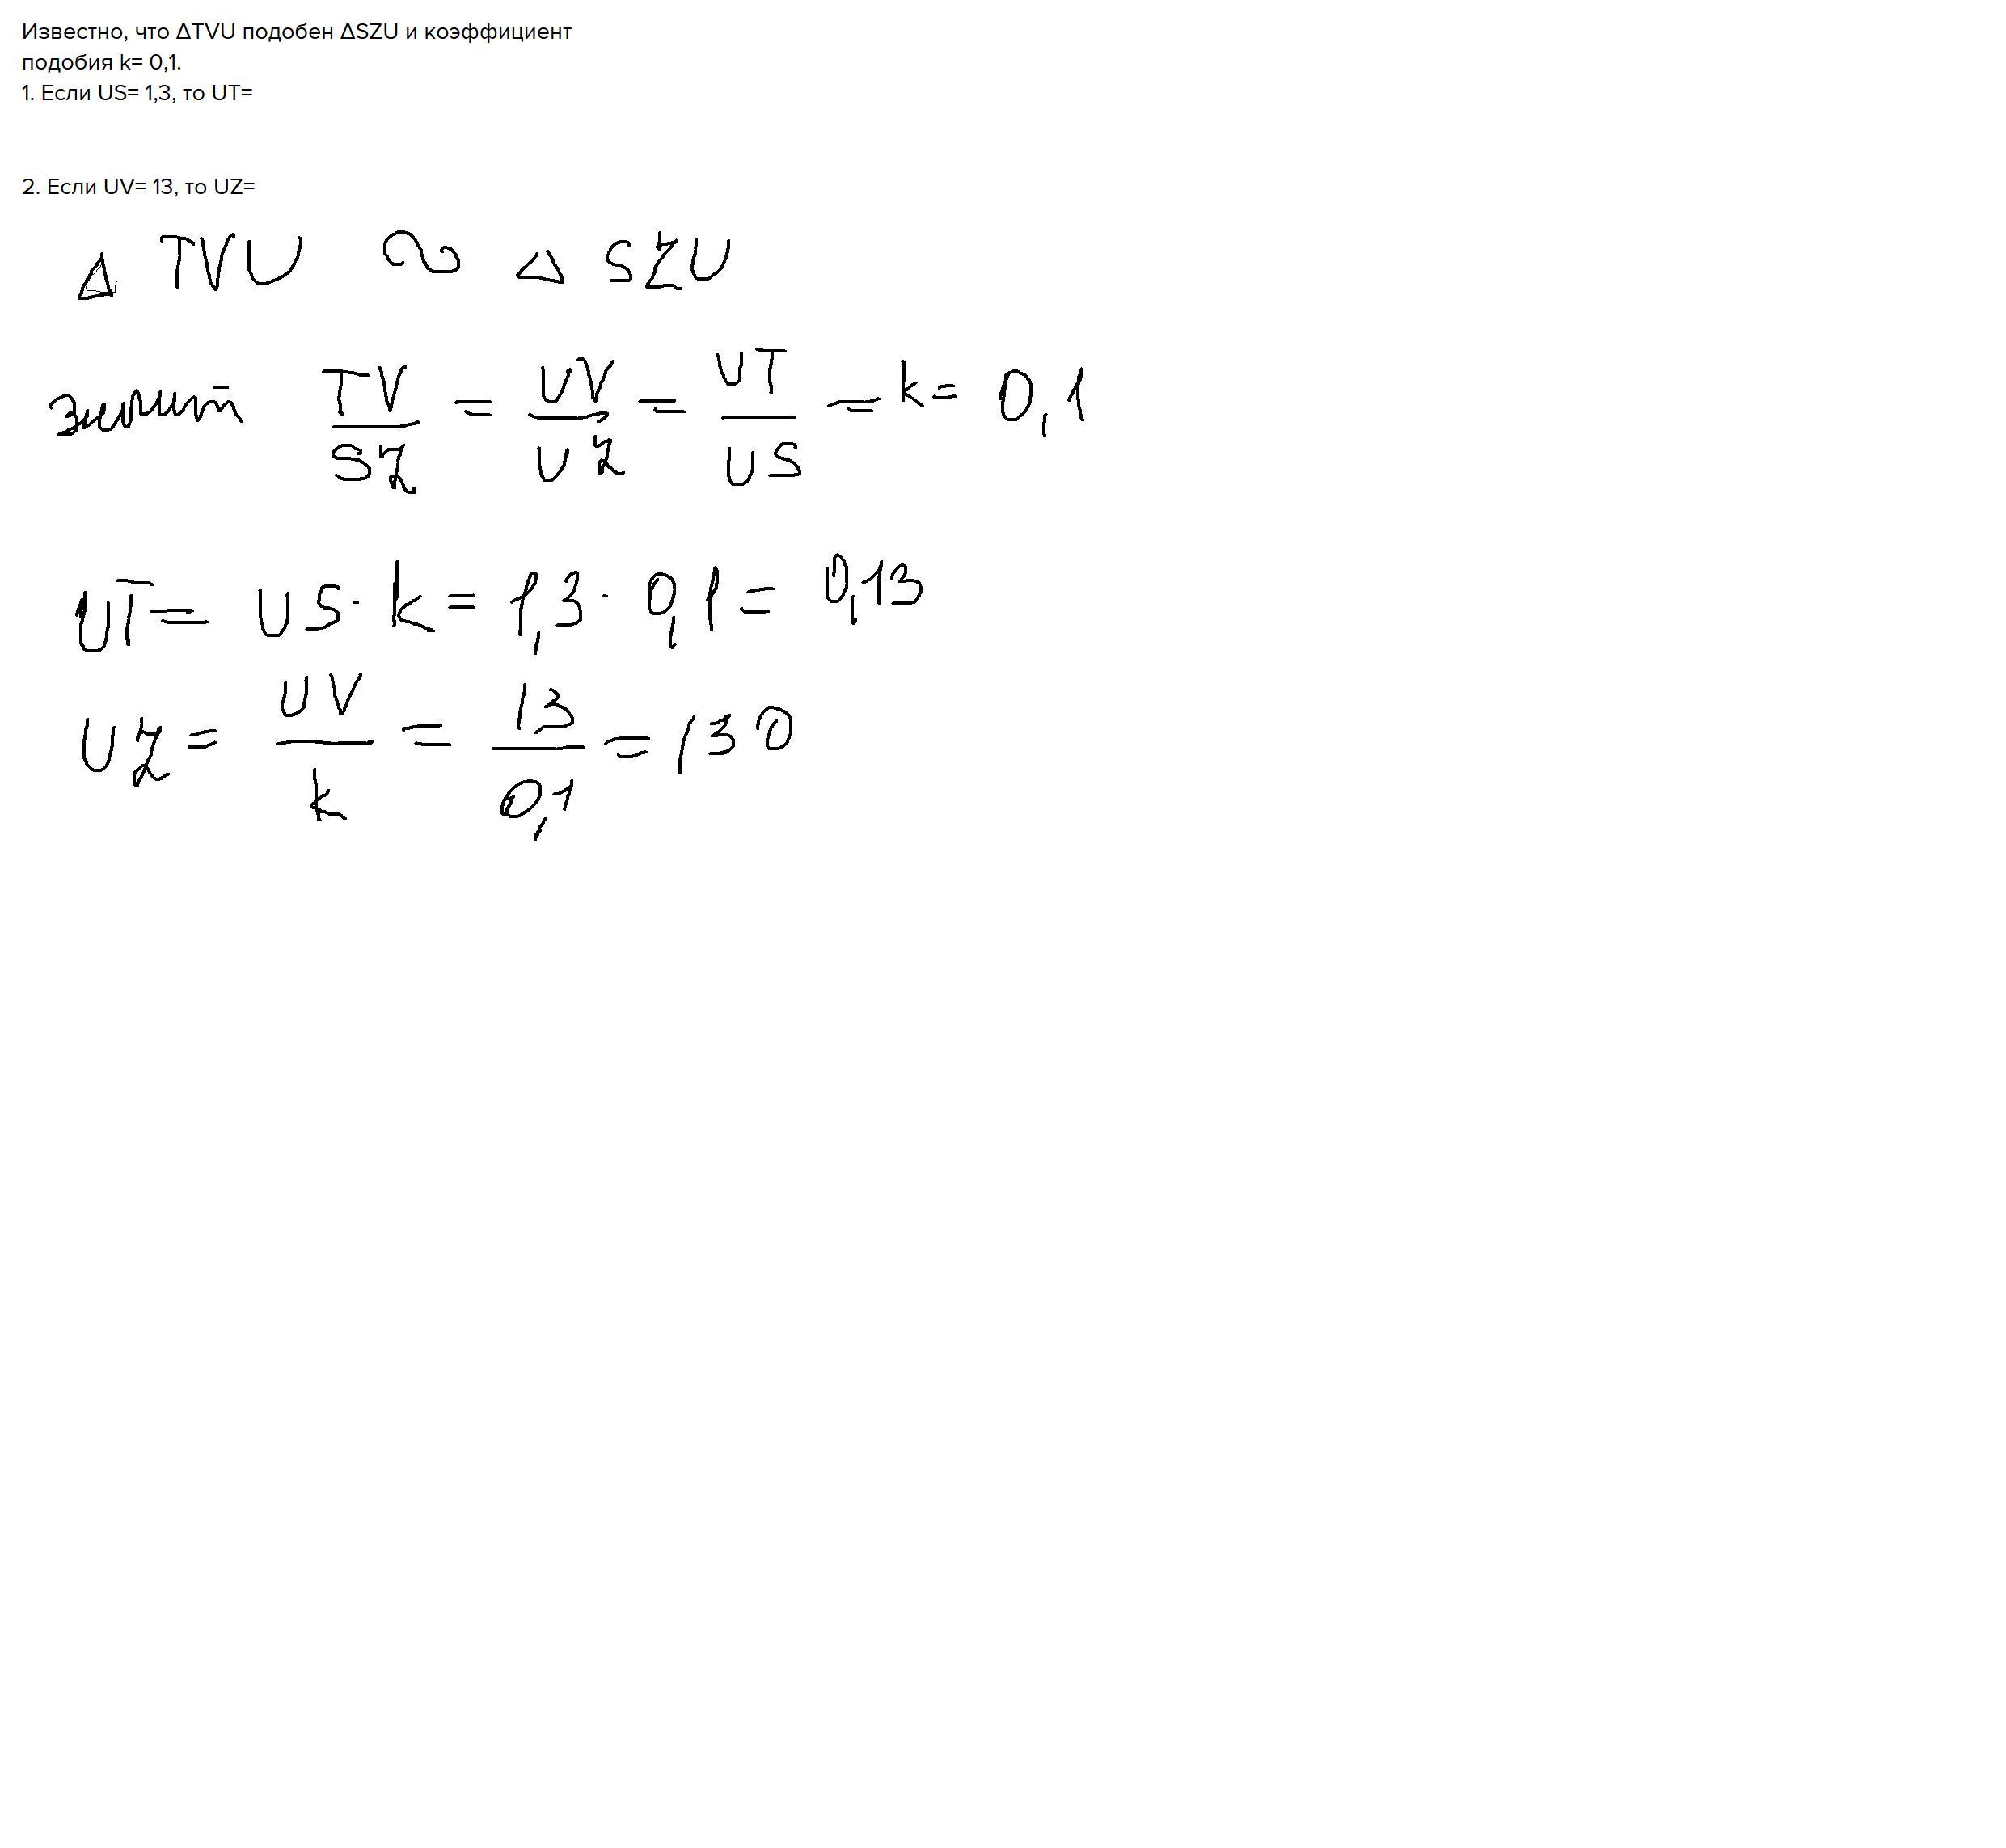 Известно, что ΔTVU подобен ΔSZU и коэффициент
подобия k= 0,1.
1. Если US= 1,3, то UT=
2. Если UV= 13, то UZ=
Δ TVU ∾ Δ SZU
значит TV/SZ = UV/UZ = UT/US = k = 0,1
UT = US · k = 1,3 · 0,1 = 0,13
UZ = UV/k = 13/0,1 = 130